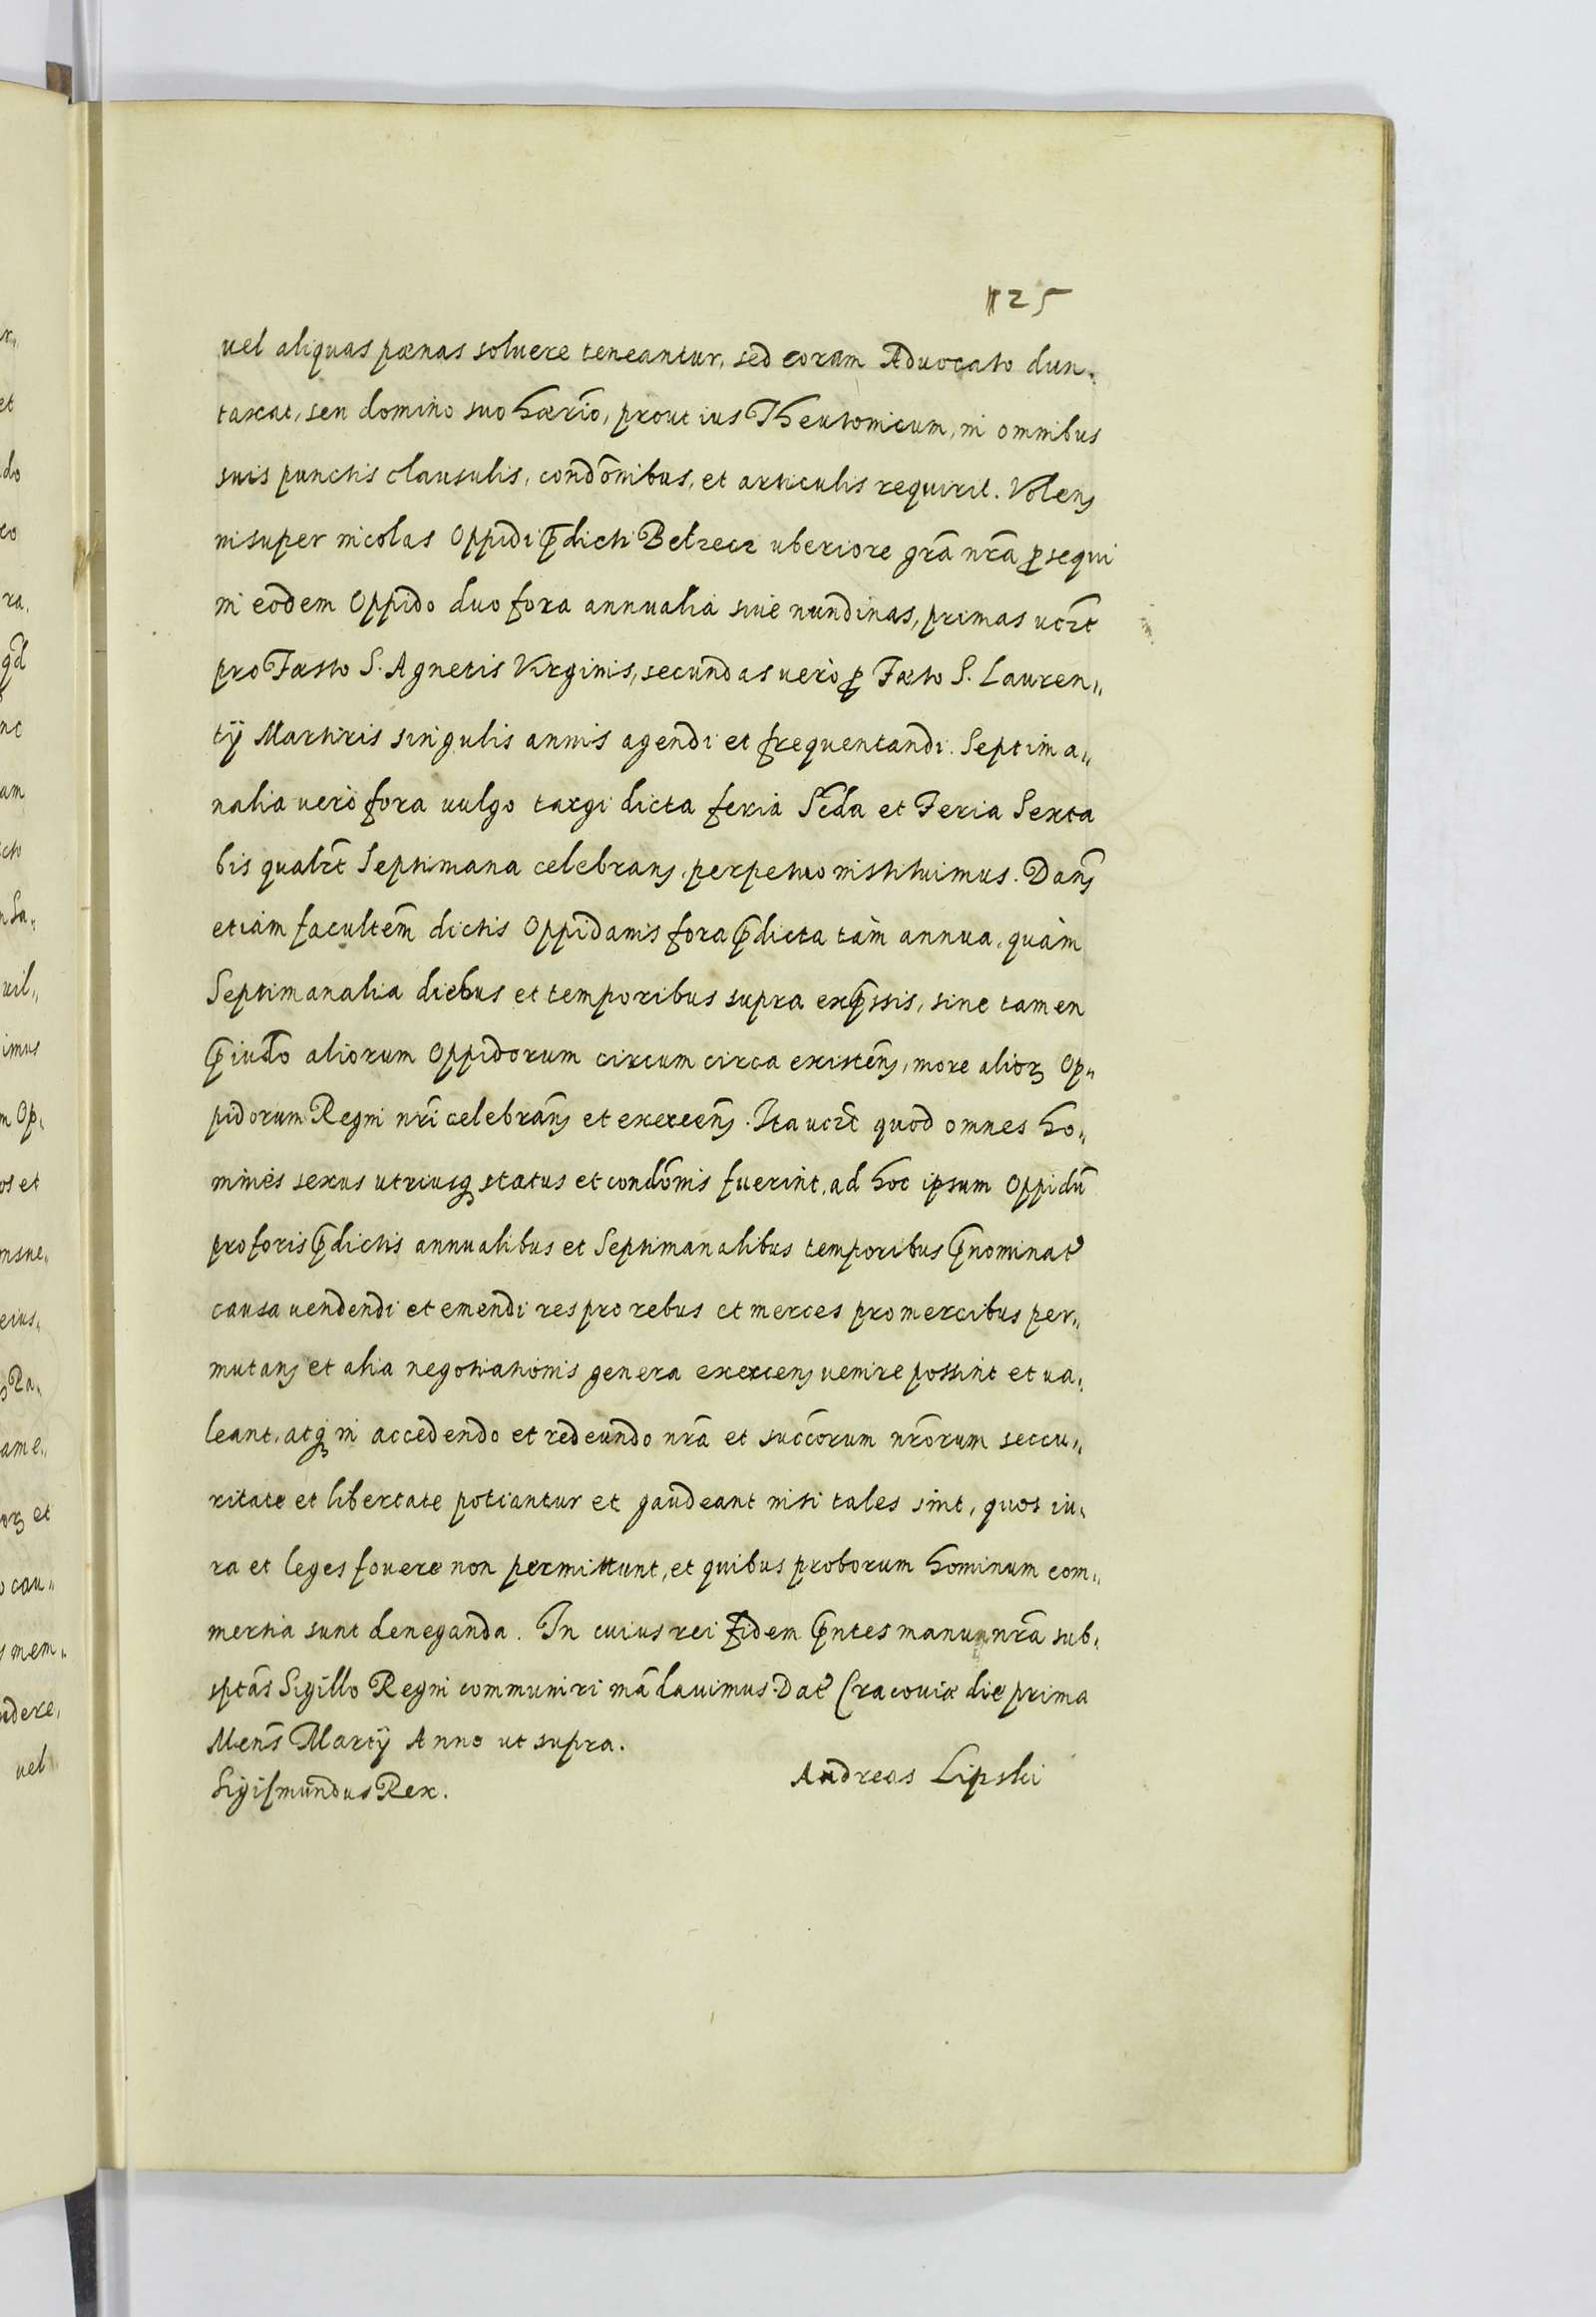 125
uel aliquas pœnas soluere teneantur, sed coram Aduocato dun„
taxat, seu domino suo hœrio͂, prout ius Theutonicum, in omnibus
suis punctis clausulis, condo͂nibus, et articulis requirit. Volen̄
insuper incolas Oppidi p̄dicti Belzecz vberiore gra͂ nra͂ ꝓsequi
in eodem Oppido duo fora annualia siue nundinas, primas vczt͂
pro Fæsto S. Agnetis Virginis, secundas uerò ꝓ Fæsto S. Lauren„
tÿ Martiris singulis annis agendi et frequentandi. Septima„
nalia uerò fora uulgo targi dicta feria Scd͂a et Feria Sexta
bis qualzt͂ Septimana celebran̄ perpetuo instituimus. Dan̄
etiam facultem͂ dictis Oppidanis fora p̄dicta tàm annua, quàm
Septimanalia diebus et temporibus supra exp̄ssis, sine tamen
p̄iudo͂ aliorum Oppidorum circum circa existen̄, more alioꝝ Op„
pidorum Regni nri͂ celebran̄ et exercen̄. Ita vczt͂ quod omnes ho„
mines sexus utriusqꝫ status et condo͂nis fuerint, ad hoc ipsum Oppidu͂
pro foris p̄dictis annualibus et Septimanalibus temporibus p̄nominat͂
causa uendendi et emendi res pro rebus et merces pro mercibus per„
mutan̄ et alia negotiationis genera exercen̄ uenire possint et ua„
leant, atqꝫ in accedendo et redeundo nra͂ et succo͂rum nro͂rum seccu„
ritate et libertate potiantur et gaudeant nisi tales sint, quos iu„
ra et leges fouere non permittunt, et quibus proborum hominum com„
mertia sunt deneganda. In cuius rei fidem p̄ntes manu nra͂ sub„
spta͂s Sigillo Regni communiri ma͂dauimus. Dat͂ Cracouiæ die prima
Men͂s Martÿ Anno ut supra.
Sigismundus Rex.
Andreas Lipski